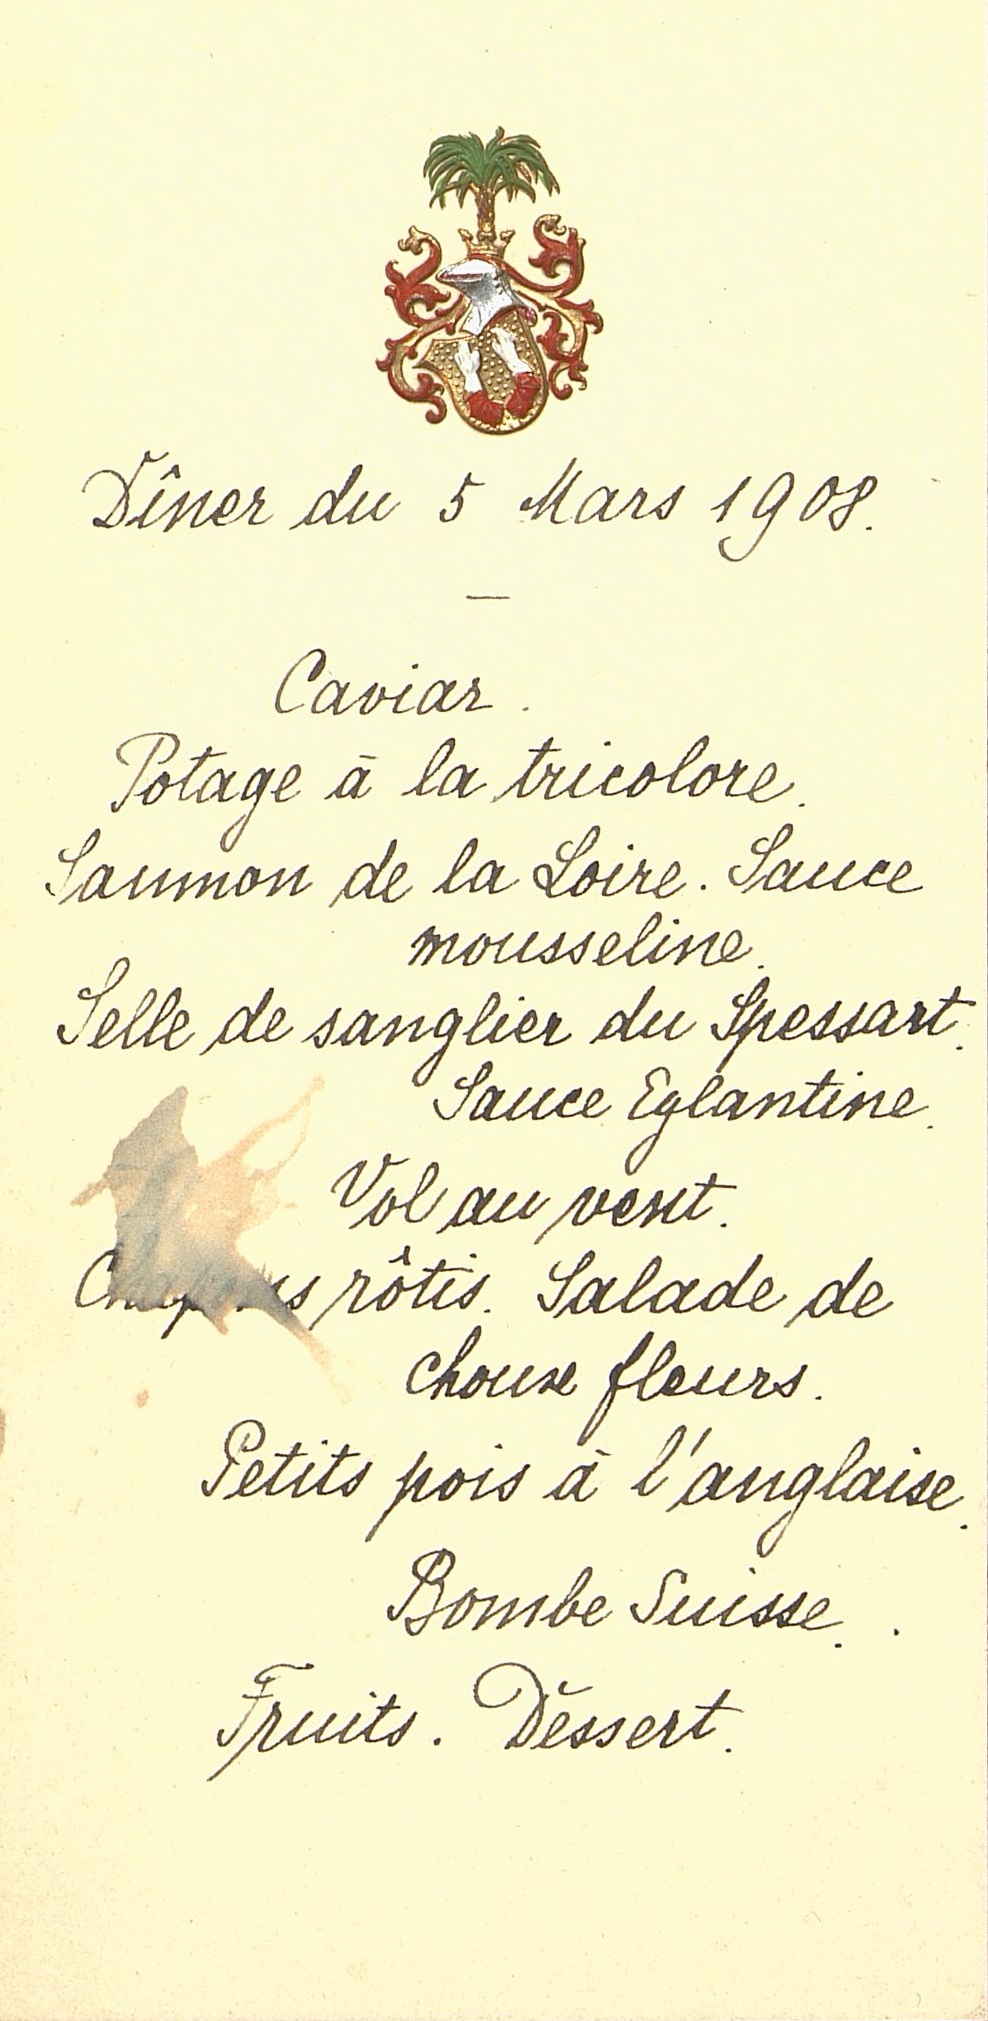 Dîner du 5 Mars 1908.
Caviar.
Potage à la tricolore.
Saumon de la Loire. Sauce
mousseline.
Selle de sanglier du Spessart.
Sauce Eglantine.
Vol au vent.
Chapons rôtis. Salade de
choux fleurs.
Petits pois à l'anglaise.
Bombe Suisse.
Fruits. Déssert.